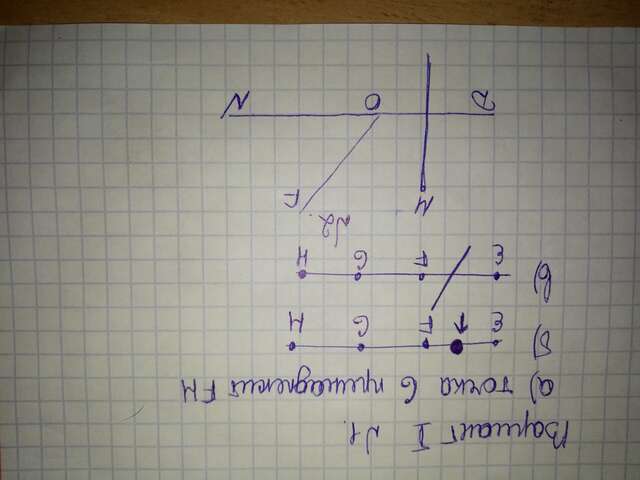 Вариант I №1.
а) точка G принадлежит FH
б) E F G H
в) E F G H
№2.
M F
D O N